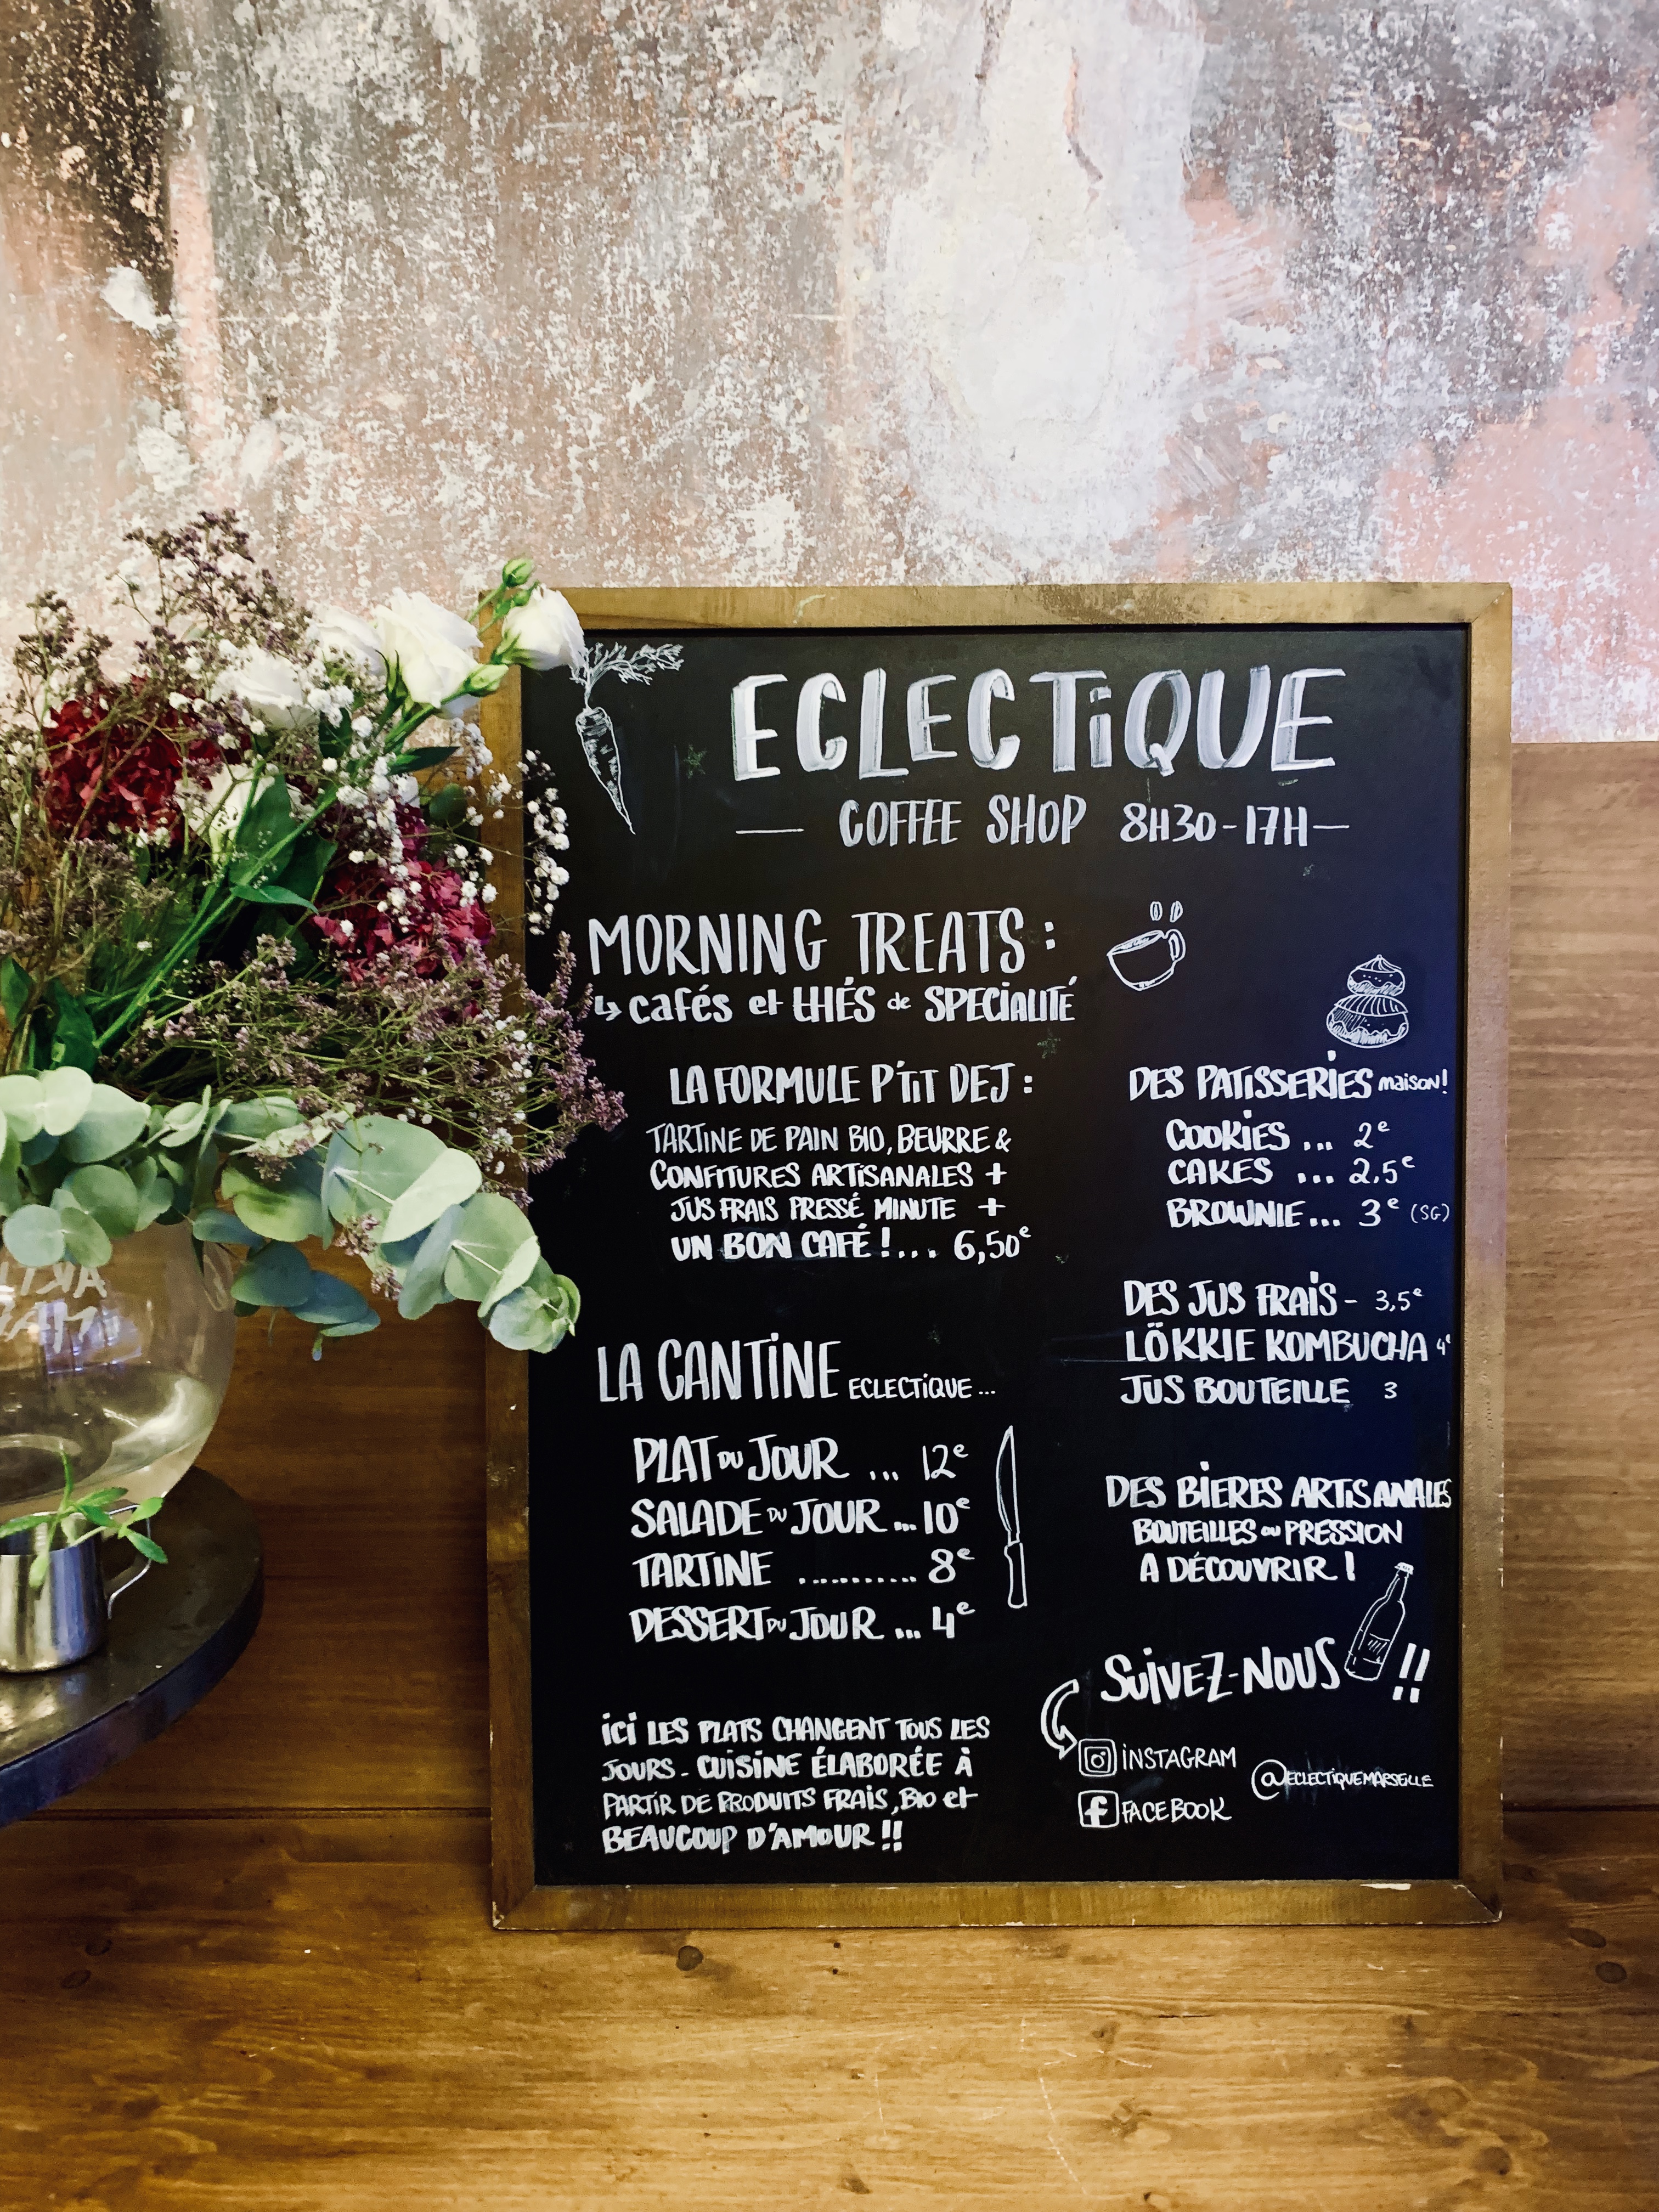 ECLECTIQUE
COFFEE SHOP 8H30-17H
MORNING TREATS :
↳ cafés et thés de SPECIALITÉ
LA FORMULE P'TIT DEJ :
TARTINE DE PAIN BIO, BEURRE &
CONFITURES ARTISANALES +
JUS FRAIS PRESSÉ MINUTE +
UN BON CAFÉ !... 6,50e
LA CANTINE ECLECTIQUE ...
PLAT DU JOUR ... 12e
SALADE DU JOUR ... 10e
TARTINE ........... 8e
DESSERT DU JOUR ... 4e
ici LES PLATS CHANGENT TOUS LES
JOURS - CUISINE ÉLABORÉE À
PARTIR DE PRODUITS FRAIS, BIO et
BEAUCOUP D'AMOUR !!
DES PATISSERIES maison!
COOKIES ... 2e
CAKES ... 2,5e
BROWNIE ... 3e (SG)
DES JUS FRAIS - 3,5e
LÖKKIE KOMBUCHA 4e
JUS BOUTEILLE 3
DES BIERES ARTISANALES
BOUTEILLES ou PRESSION
A DÉCOUVRIR !
SUIVEZ-NOUS !!
INSTAGRAM
@ECLECTIQUEMARSEILLE
FACEBOOK